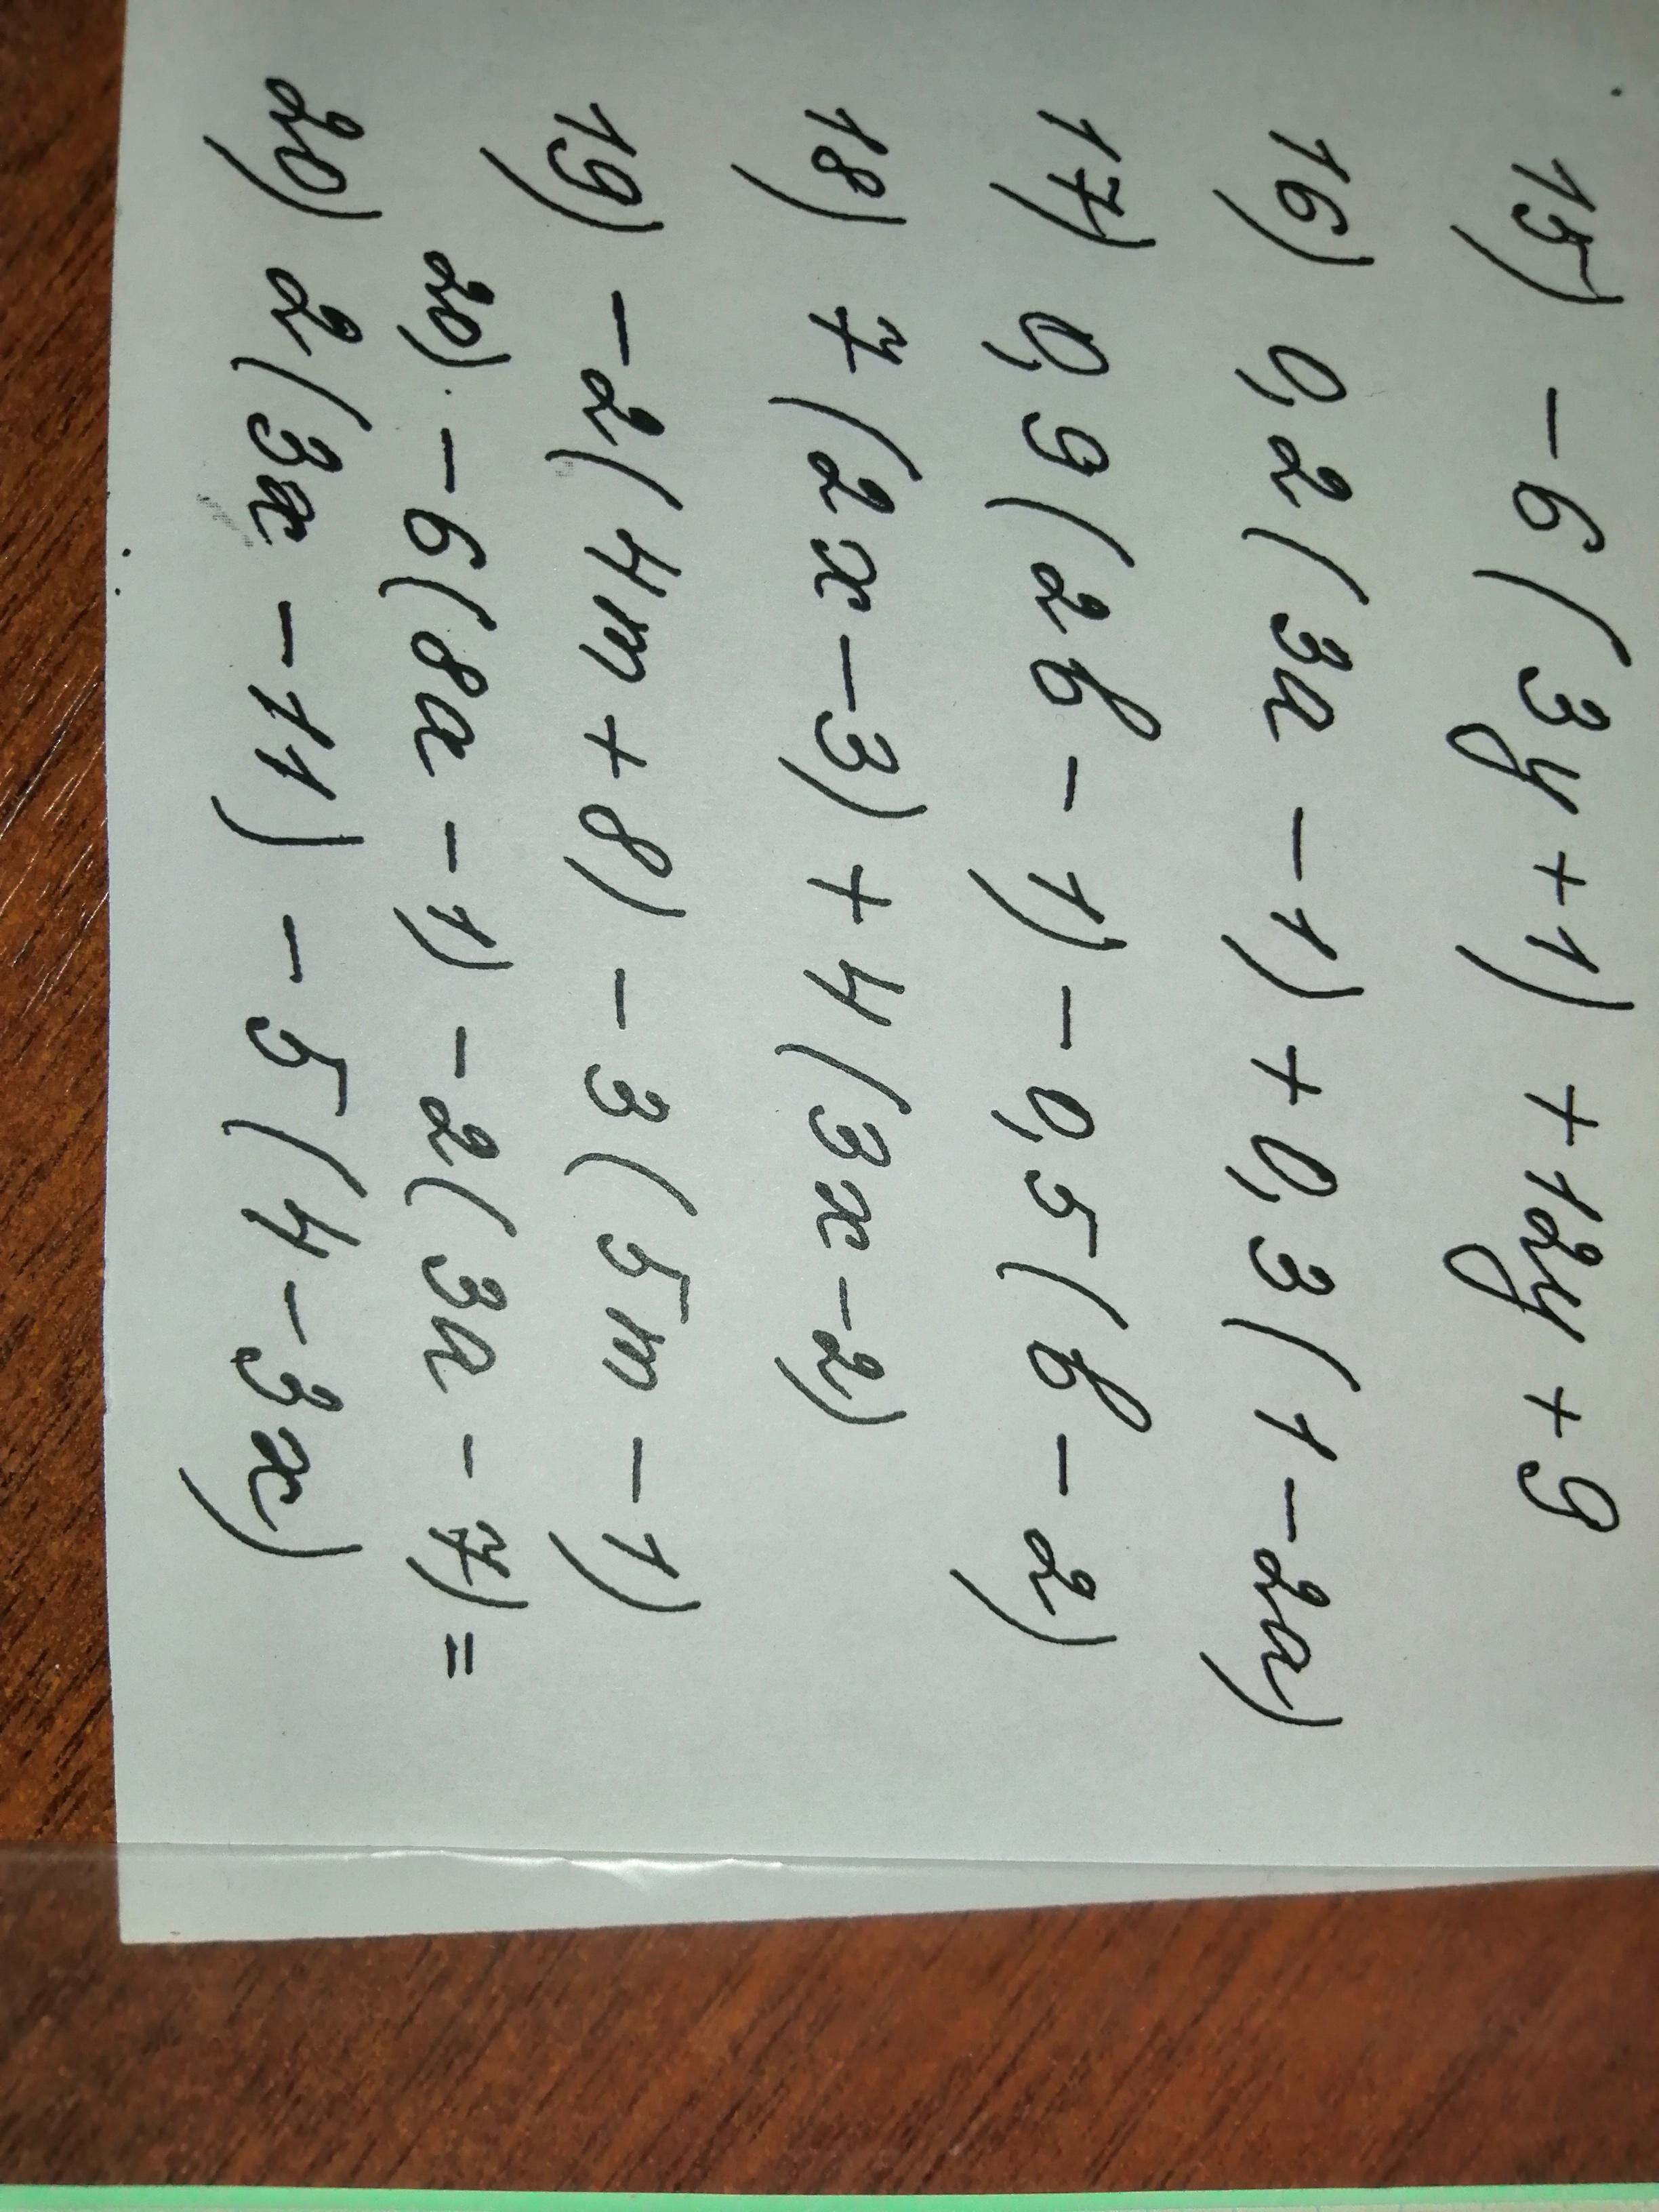 15) -6(3y+1)+12y+9
16) 0,2(3a-1)+0,3(1-2a)
17) 0,9(2b-1)-0,5(b-2)
18) 7(2x-3)+4(3x-2)
19) -2(4m+8)-3(5m-1)
20) -6(8a-1)-2(3a-7)=
20) 2(3x-11)-5(4-3x)